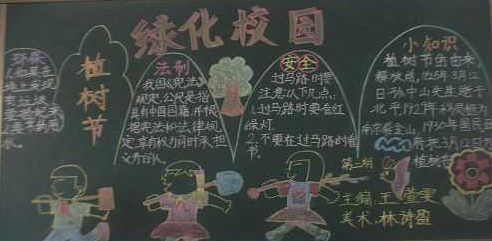 绿化校园
环保
植树节
法制
我国《宪法》
规定,公民是指
具有中国国籍,并根
据宪法和法律规
定,享有权力同时承担
义务的人
安全
过马路时要
注意以下几点。
1.过马路时要看红
绿灯。
2.不要在过马路时看
书。
小知识
植树节的由来
解放前,1925年3月12
日孙中山先生逝于
北平,1929年
南京紫金山,1930年国民
3月12日
植树
第二期
主编:王萱雯
美术:林诗盈